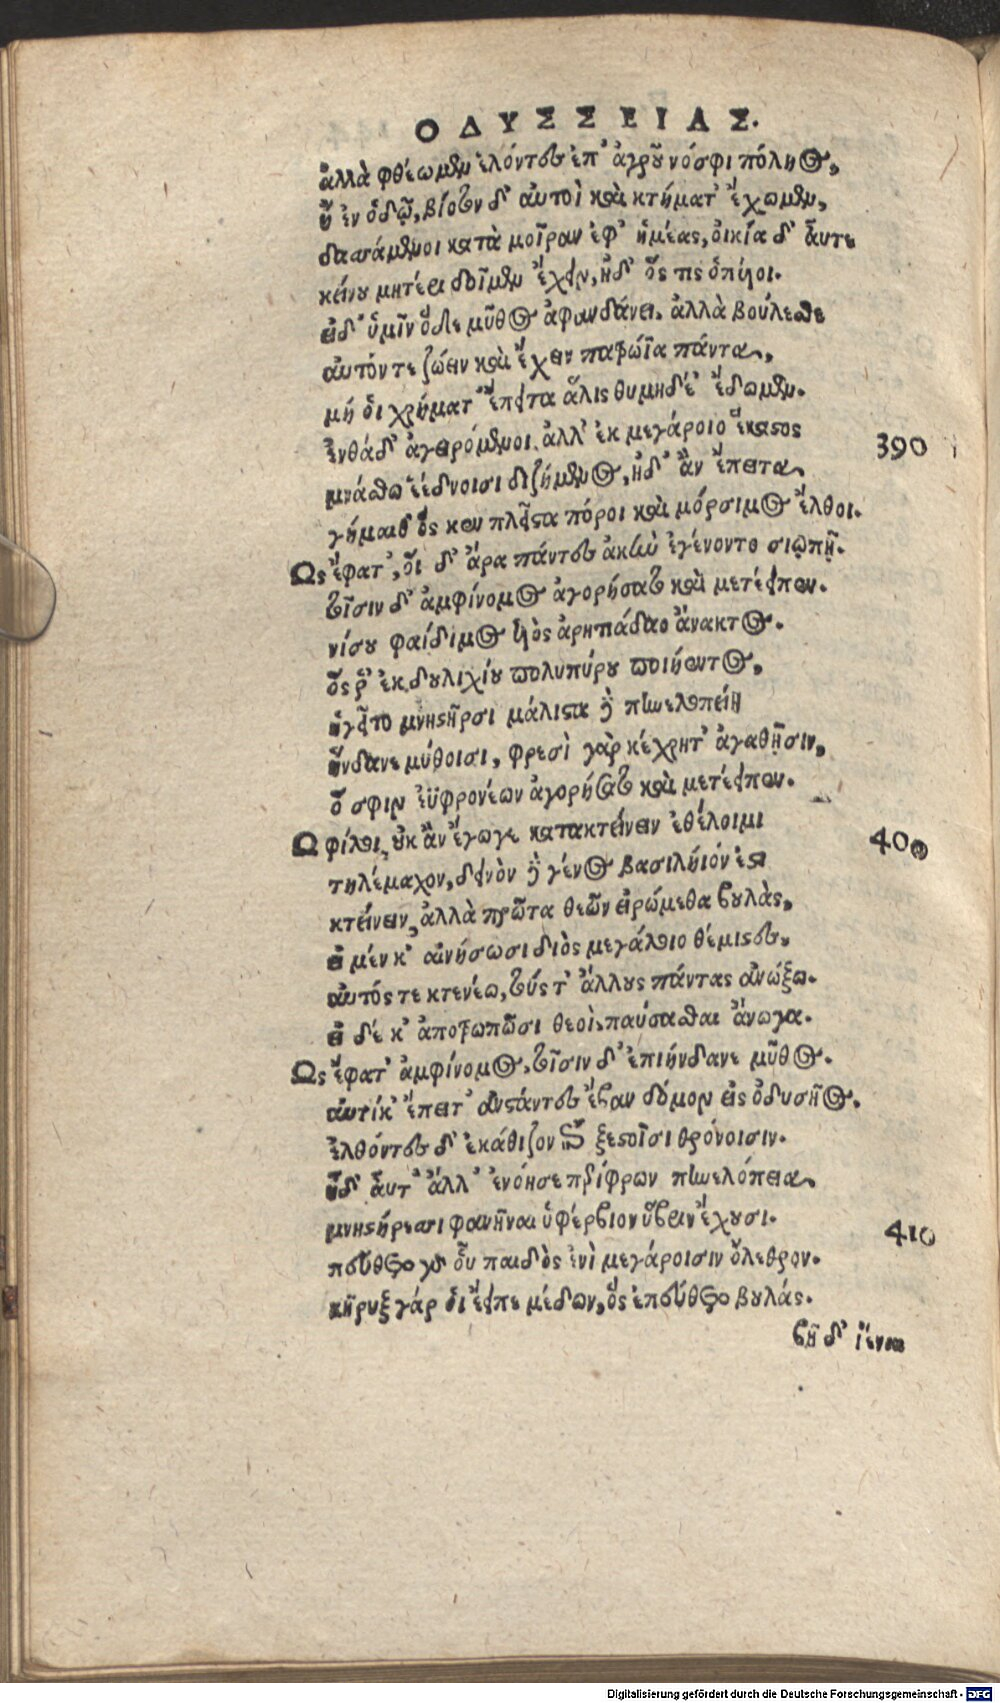 ΟΔΥΣΣΕΙΑΣ.
ἀλλὰ φθέωμεν ἑλόντες ἐπ' ἀγροῦ νόσφι πόληος,
ἢ ἐν ὁδῷ, βίοτον δ' αὐτοὶ καὶ κτήματ' ἔχωμεν,
δασσάμενοι κατὰ μοῖραν ἐφ' ἡμέας, οἰκία δ' αὖτε
κείνου μητέρι δοῖμεν ἔχειν, ἠδ' ὅς τις ὀπύιοι.
εἰ δ' ὑμῖν ὅδε μῦθος ἀφανδάνει. ἀλλὰ βούλεσθε
αὐτόν τε ζώειν καὶ ἔχειν πατρώϊα πάντα,
μή οἱ χρήματ' ἔπειτα ἅλις θυμηδέ' ἔδωμεν.
ἐνθάδ' ἀγειρόμενοι. ἀλλ' ἐκ μεγάροιο ἕκαστος
390
μνάσθω ἐέδνοισι διζήμενος, ἡδ' ἂν ἔπειτα,
γήμαιθ' ὅς κεν πλεῖστα πόροι καὶ μόρσιμος ἔλθοι.
Ὣς ἔφατ', οἱ δ' ἄρα πάντες ἀκὴν ἐγένοντο σιωπῇ.
τοῖσιν δ' ἀμφίνομος ἀγορήσατο καὶ μετέειπεν.
νίσου φαίδιμος υἱὸς ἀρητιάδαο ἄνακτος.
ὅς ῥ' ἐκ δουλιχίου πολυπύρου ποιήεντος,
ἡγεῖτο μνηστῆρσι μάλιστα δὲ πηνελοπείῃ
ἥνδανε μύθοισι, φρεσὶ γὰρ κέχρητ' ἀγαθῇσιν,
ὅ σφιν ἐϋφρονέων ἀγορήσατο καὶ μετέειπεν.
Ὦ φίλοι, οὐκ ἂν ἔγωγε κατακτείνειν ἐθέλοιμι
400
τηλέμαχον, δεινὸν δὲ γένος βασιλήιόν ἐστι
κτείνειν, ἀλλὰ πρῶτα θεῶν εἰρώμεθα βουλὰς,
εἰ μέν κ' αἰνήσωσι διὸς μεγάλοιο θέμιστες,
αὐτός τε κτενέω, τούς τ' ἄλλους πάντας ἀνώξω.
εἰ δέ κ' ἀποτρωπῶσι θεοὶ, παύσασθαι ἄνωγα.
Ὣς ἔφατ' ἀμφίνομος, τοῖσιν δ' ἐπιήνδανε μῦθος.
αὐτίκ' ἔπειτ' ἀνστάντες ἔβαν δόμον εἰς ὀδυσῆος.
ἐλθόντες δ' ἐκάθιζον ἐπὶ ξεστοῖσι θρόνοισιν.
ἡ δ' αὖτ' ἄλλ' ἐνόησε περίφρων πηνελόπεια,
μνηστήρεσσι φανῆναι ὑπέρβιον ὕβριν ἔχουσι.
410
πεύθετο γὰρ οὗ παιδὸς ἐνὶ μεγάροισιν ὄλεθρον.
κῆρυξ γάρ οἱ ἔειπε μέδων, ὃς ἐπεύθετο βουλάς.
βῆ δ' ἰέναι
Digitalisierung gefördert durch die Deutsche Forschungsgemeinschaft - DFG